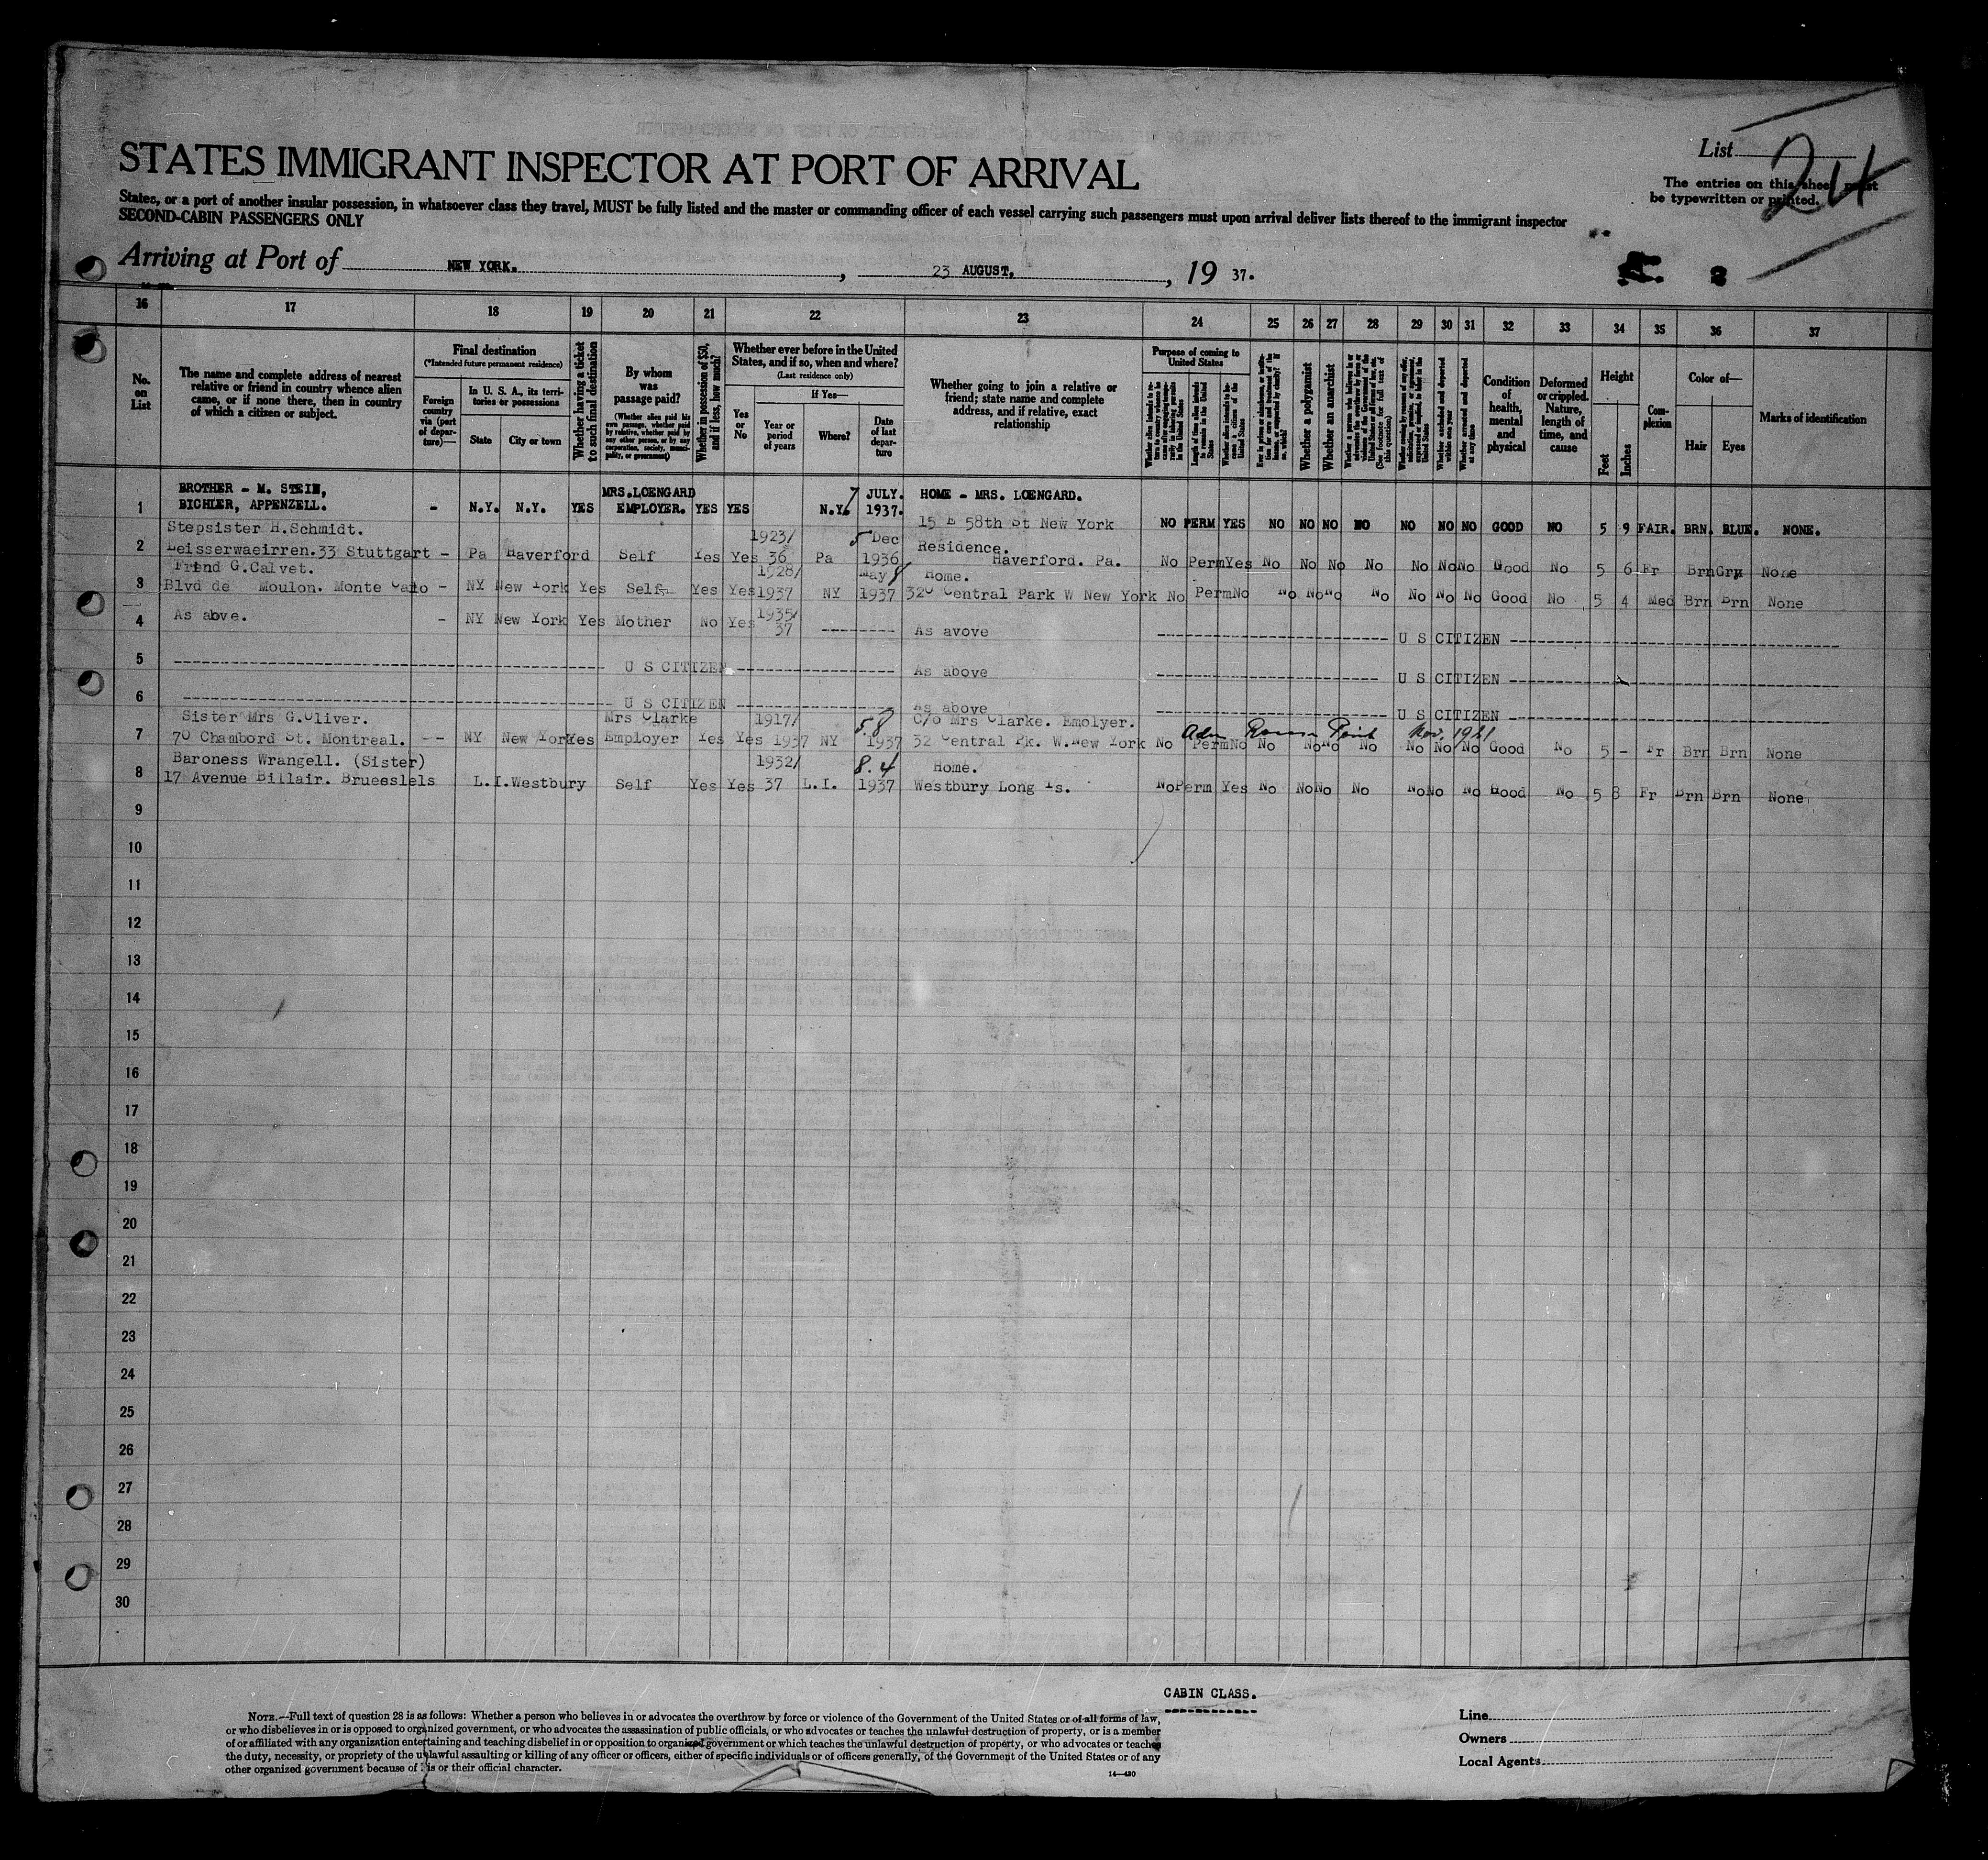 STATES IMMIGRANT INSPECTOR AT PORT OF ARRIVAL
List 24
The entries on this sheet must
be typewritten or printed.
States, or a port of another insular possession, in whatsoever class they travel, MUST be fully listed and the master or commanding officer of each vessel carrying such passengers must upon arrival deliver lists thereof to the immigrant inspector
SECOND-CABIN PASSENGERS ONLY
Arriving at Port of NEW YORK. , 23 AUGUST. , 19 37.
16 17 18 19 20 21 22 23 24 25 26 27 28 29 30 31 32 33 34 35 36 37
No. on List
The name and complete address of nearest relative or friend in country whence alien came, or if none there, then in country of which a citizen or subject.
Final destination
(*Intended future permanent residence)
Foreign country via (port of departure)—
In U. S. A., its territories or possessions
State
City or town
Whether having a ticket to such final destination
By whom was passage paid?
(Whether alien paid his own passage, whether paid by relative, whether paid by any other person, or by any corporation, society, municipality, or government)
Whether in possession of $50, and if less, how much?
Whether ever before in the United States, and if so, when and where?
(Last residence only)
Yes or No
If Yes—
Year or period of years
Where?
Date of last departure
Whether going to join a relative or friend; state name and complete address, and if relative, exact relationship
Purpose of coming to United States
Whether a polygamist
Whether an anarchist
(See footnote for full text of this question)
Whether arrested and deported at any time
Condition of health, mental and physical
Deformed or crippled. Nature, length of time, and cause
Height
Feet
Inches
Complexion
Color of—
Hair
Eyes
Marks of identification
BROTHER - M. STEIN, MRS.LOENGARD 7 JULY. HOME - MRS. LOENGARD.
1 BICHLER, APPENZELL. - N.Y. N.Y. YES EMPLOYER. YES YES N.Y. 1937. 15 E 58th St New York NO PERM YES NO NO NO NO NO NO NO GOOD NO 5 9 FAIR. BRN. BLUE. NONE.
Stepsister H.Schmidt. 1923/ 5 Dec Residence.
2 Leisserwaeirren.33 Stuttgart - Pa Haverford Self Yes Yes 36 Pa 1936 Haverford. Pa. No Perm Yes No No No No No No No Good No 5 6 Fr Brn Gry None
Friend G.Calvet. 1928/ May 8 Home.
3 Blvd de Moulon. Monte Calo - NY New York Yes Self Yes Yes 1937 NY 1937 320 Central Park W New York No Perm No No No No No No No No Good No 5 4 Med Brn Brn None
4 As abve. - NY New York Yes Mother No Yes 1935/ 37 -------- As avove ---------- U S CITIZEN ----------
5 ---------- U S CITIZEN ---------- As above ---------- U S CITIZEN ----------
6 ---------- U S CITIZEN ---------- As above ---------- U S CITIZEN ----------
Sister Mrs G.Oliver. Mrs Clarke 1917/ 5.8 C/o Mrs Clarke. Emolyer. Nov, 1921
7 70 Chambord St. Montreal. -- NY New York Yes Employer Yes Yes 1937 NY 1937 32 Central Pk. W.New York No Perm No No No No No No No No Good No 5 - Fr Brn Brn None
Baroness Wrangell. (Sister) 1932/ 8.4 Home.
8 17 Avenue Billair. Brueeslels L.I. Westbury Self Yes Yes 37 L.I. 1937 Westbury Long Is. No Perm Yes No No No No No No No Good No 5 8 Fr Brn Brn None
9
10
11
12
13
14
15
16
17
18
19
20
21
22
23
24
25
26
27
28
29
30
CABIN CLASS.
NOTE.—Full text of question 28 is as follows: Whether a person who believes in or advocates the overthrow by force or violence of the Government of the United States or of all forms of law,
or who disbelieves in or is opposed to organized government, or who advocates the assassination of public officials, or who advocates or teaches the unlawful destruction of property, or is a member
of or affiliated with any organization entertaining and teaching disbelief in or opposition to organized government or which teaches the unlawful destruction of property, or who advocates or teaches
the duty, necessity, or propriety of the unlawful assaulting or killing of any officer or officers, either of specific individuals or of officers generally, of the Government of the United States or of any
other organized government because of his or their official character.
14—430
Line
Owners
Local Agents